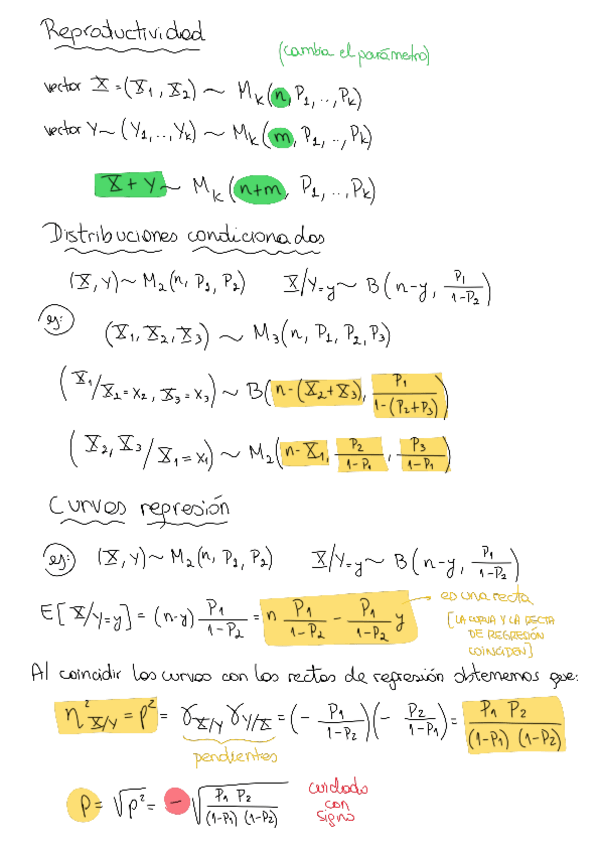 Reproductividad
(cambia el parámetro)
vector X = (X₁, X₂) ~ M_k(n, P₁, .., P_k)
vector Y ~ (Y₁, .., Y_k) ~ M_k(m, P₁, .., P_k)
X + Y ~ M_k(n+m, P₁, .., P_k)
Distribuciones condicionadas
(X, Y) ~ M₂(n, P₁, P₂) X/Y=y ~ B(n-y, P₁/(1-P₂))
ej:
(X₁, X₂, X₃) ~ M₃(n, P₁, P₂, P₃)
(X₁/X₂=x₂, X₃=x₃) ~ B(n-(X₂+X₃), P₁/(1-(P₂+P₃)))
(X₂, X₃/X₁=x₁) ~ M₂(n-X₁, P₂/(1-P₁), P₃/(1-P₁))
Curvas regresión
ej: (X, Y) ~ M₂(n, P₁, P₂) X/Y=y ~ B(n-y, P₁/(1-P₂))
E[X/Y=y] = (n-y) P₁/(1-P₂) = n P₁/(1-P₂) - P₁/(1-P₂) y
es una recta
[LA CURVA Y LA RECTA
DE REGRESIÓN
COINCIDEN]
Al coincidir las curvas con las rectas de regresión obtenemos que:
η²X/Y = ρ² = γX/Y γY/X = (- P₁/(1-P₂))(- P₂/(1-P₁)) = P₁ P₂/((1-P₁) (1-P₂))
pendientes
ρ = √ρ² = - √(P₁ P₂/((1-P₁) (1-P₂)))
cuidado
con
signo